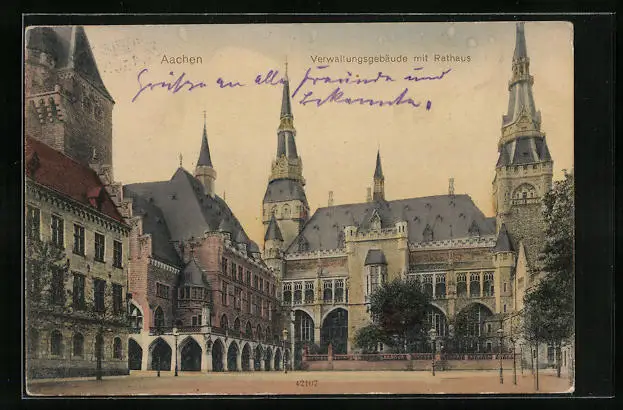 Aachen
Verwaltungsgebäude mit Rathaus
Grüße an alle Freunde und
Bekannte.
42107